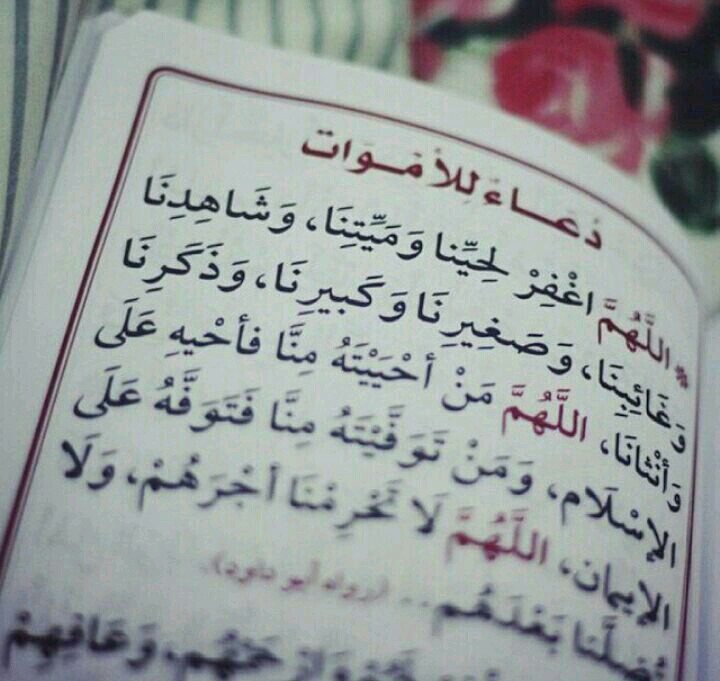 دعاء للأموات
* اللَّهُمَّ اغْفِرْ لِحَيِّنا وَمَيِّتِنَا، وَشَاهِدِنَا
وَغَائِبِنَا، وَصَغِيرِنَا وَكَبيرِنَا، وَذَكَرِنَا
وَأُنْثانَا، اللَّهُمَّ مَنْ أحْيَيْتَهُ مِنَّا فأحْيِهِ عَلَى
الإِسْلَامِ، وَمَنْ تَوَفَّيْتَهُ مِنَّا فَتَوَفَّهُ عَلَى
الإيمان، اللَّهُمَّ لَا تَحْرِمْنَا أجْرَهُمْ، وَلَا
تُضِلَّنَا بَعْدَهُم .. (رواه أبو داود).
وَعَافِهِمْ